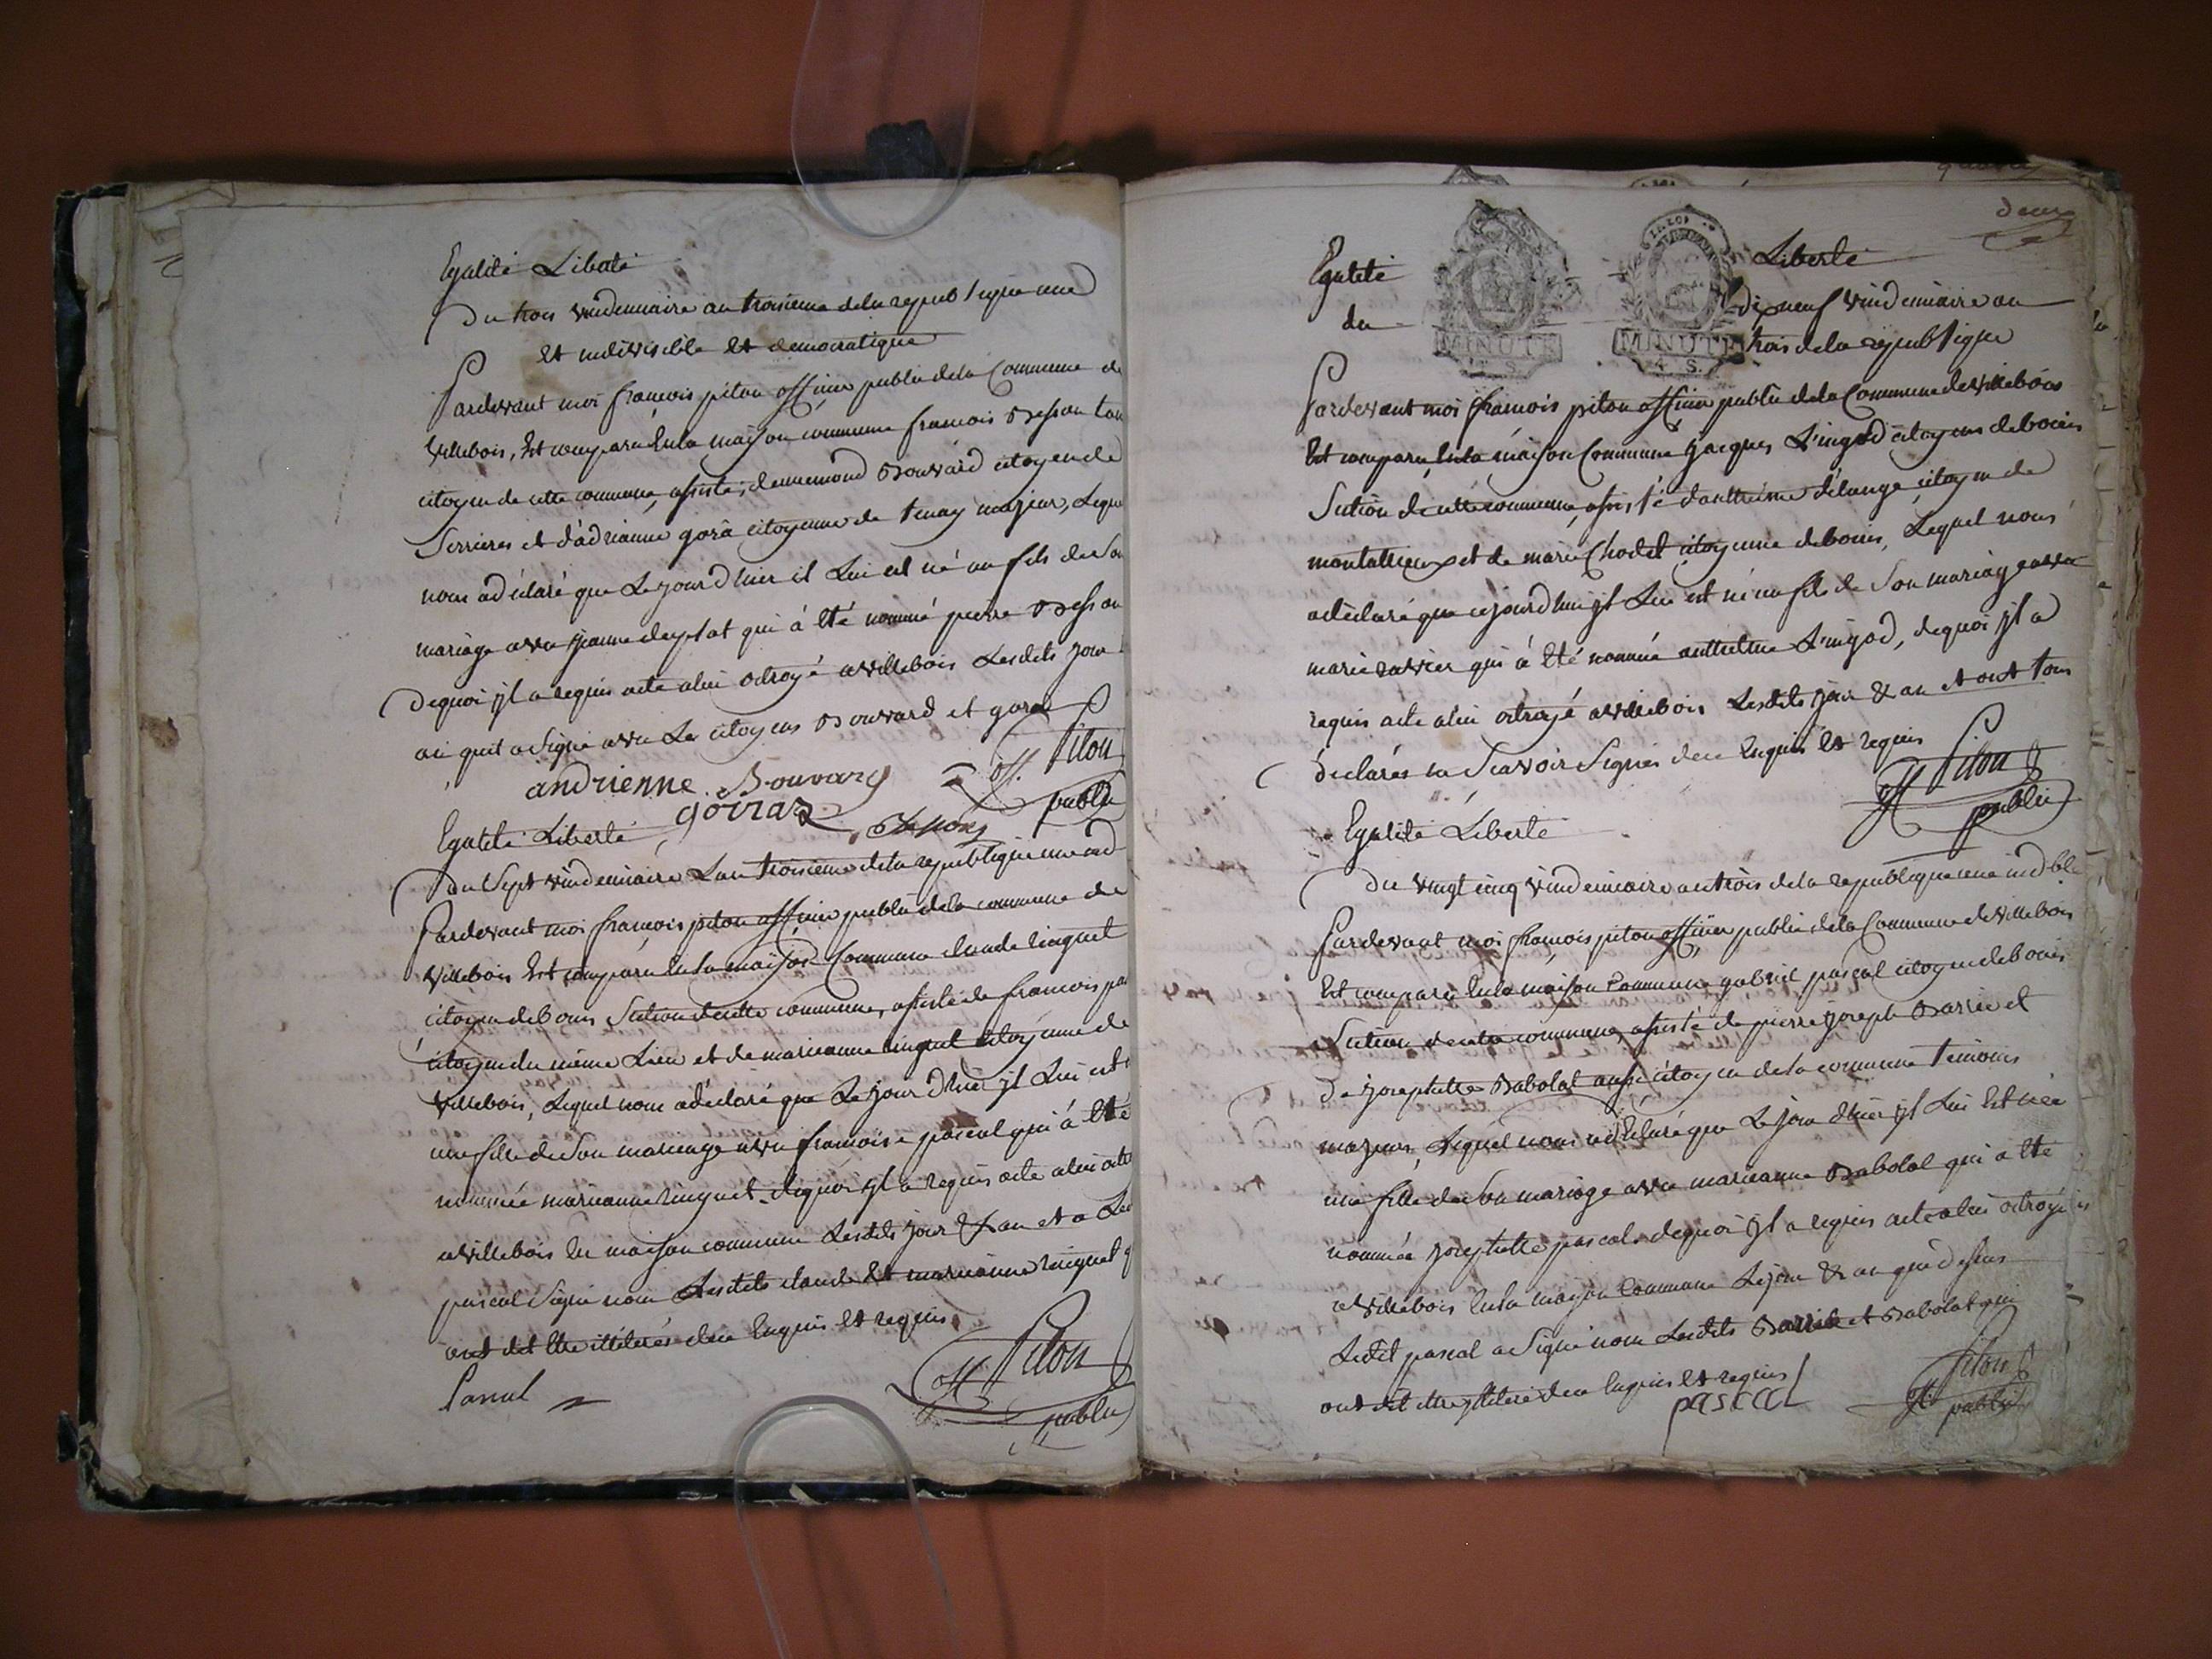 Egalité Liberté
Du trois vindemiaire an troisieme dela republique une
Et indivisible Et democratique
Pardevant moi françois piton officier public dela Commune de
villebois, Est comparu Enla maison commune francois Besson
citoyen de cette commune, assisté, Bouvard citoyen de
Serrieres et d'adrianne gora citoyenne de tenay majeur,
nous a déclaré que Le jour d'hier il Lui est né un fils de Son
mariage avec jeanne qui à Eté nommé pierre Besson
Dequoi jl a requis acte alui octroyé avillebois Lesdits jour
an quil a Signé avec Les citoyens Bouvard et gora
andrienne Bouvard
goirraz Besson
off. Piton
public
Egalité Liberté
du Sept vindemiaire L'an troisieme dela republique une
Pardevant moi françois piton officier public dela commune de
villebois Est comparu En la maison Commune claude ringuet
citoyen debouis Section decette commune, assisté de francois
citoyen du même Lieu et de marieanne ringuet citoyenne de
villebois, Lequel nous a déclaré que Le jour d'hier jl Lui est
une fille de Son mariage avec françoise pascal qui à Eté
nommée marieanne ringuet dequoi jl a requis acte alui
avillebois En maison commune Lesdits jour & an et a Led
pascal Signé non Lesdits claude Et marieanne ringuet
ont dit Etre illiterés dece Enquis Et requis
Pascal
off Piton
public
deux
Egalité Liberté
du dixneuf vindemiaire an
MINUTE MINUTE
4 S.
trois dela republique
Pardevant moi françois piton officier public dela Commune devillebois
Est comparu Enla maison Commune jacques citoyen debouis
Section de cette commune, assisté d'anthelme délange citoyen de
montallieux et de marie Chodet citoyenne debouis, Lequel nous
a déclaré que cejourd'hui jl Lui est né un fils de Son mariage avec
marie ravier qui à Eté nommé anthelme, dequoi jl a
requis acte alui octroyé avillebois Lesdits jour & an et ont tous
déclarés ne Scavoir Signer dece Enquis Et requis
off Piton
public
Egalité Liberté
Du vingt cinq vindemiaire an trois dela republique une
Pardevant moi françois piton officier public dela Commune devillebois
Est comparu Enla maison Commune gabriel pascal citoyen debouis
Section decette commune, assisté de pierre joseph Barrie et
De josephette Babolat aussi citoyen de la commune temoins
majeurs, Lequel nous a déclaré que Le jour d'hier jl Lui Est née
une fille de Son mariage avec marieanne Babolat qui a Eté
nommée josephette pascal. dequoi jl a requis acte alui octroyé
avillebois Enla maison Commune Lejour & an que dessus
Ledit pascal a Signé non Lesdits Barrie et Babolat qui
ont dit être jlliterés dece Enquis Et requis
pascal
Piton
off public